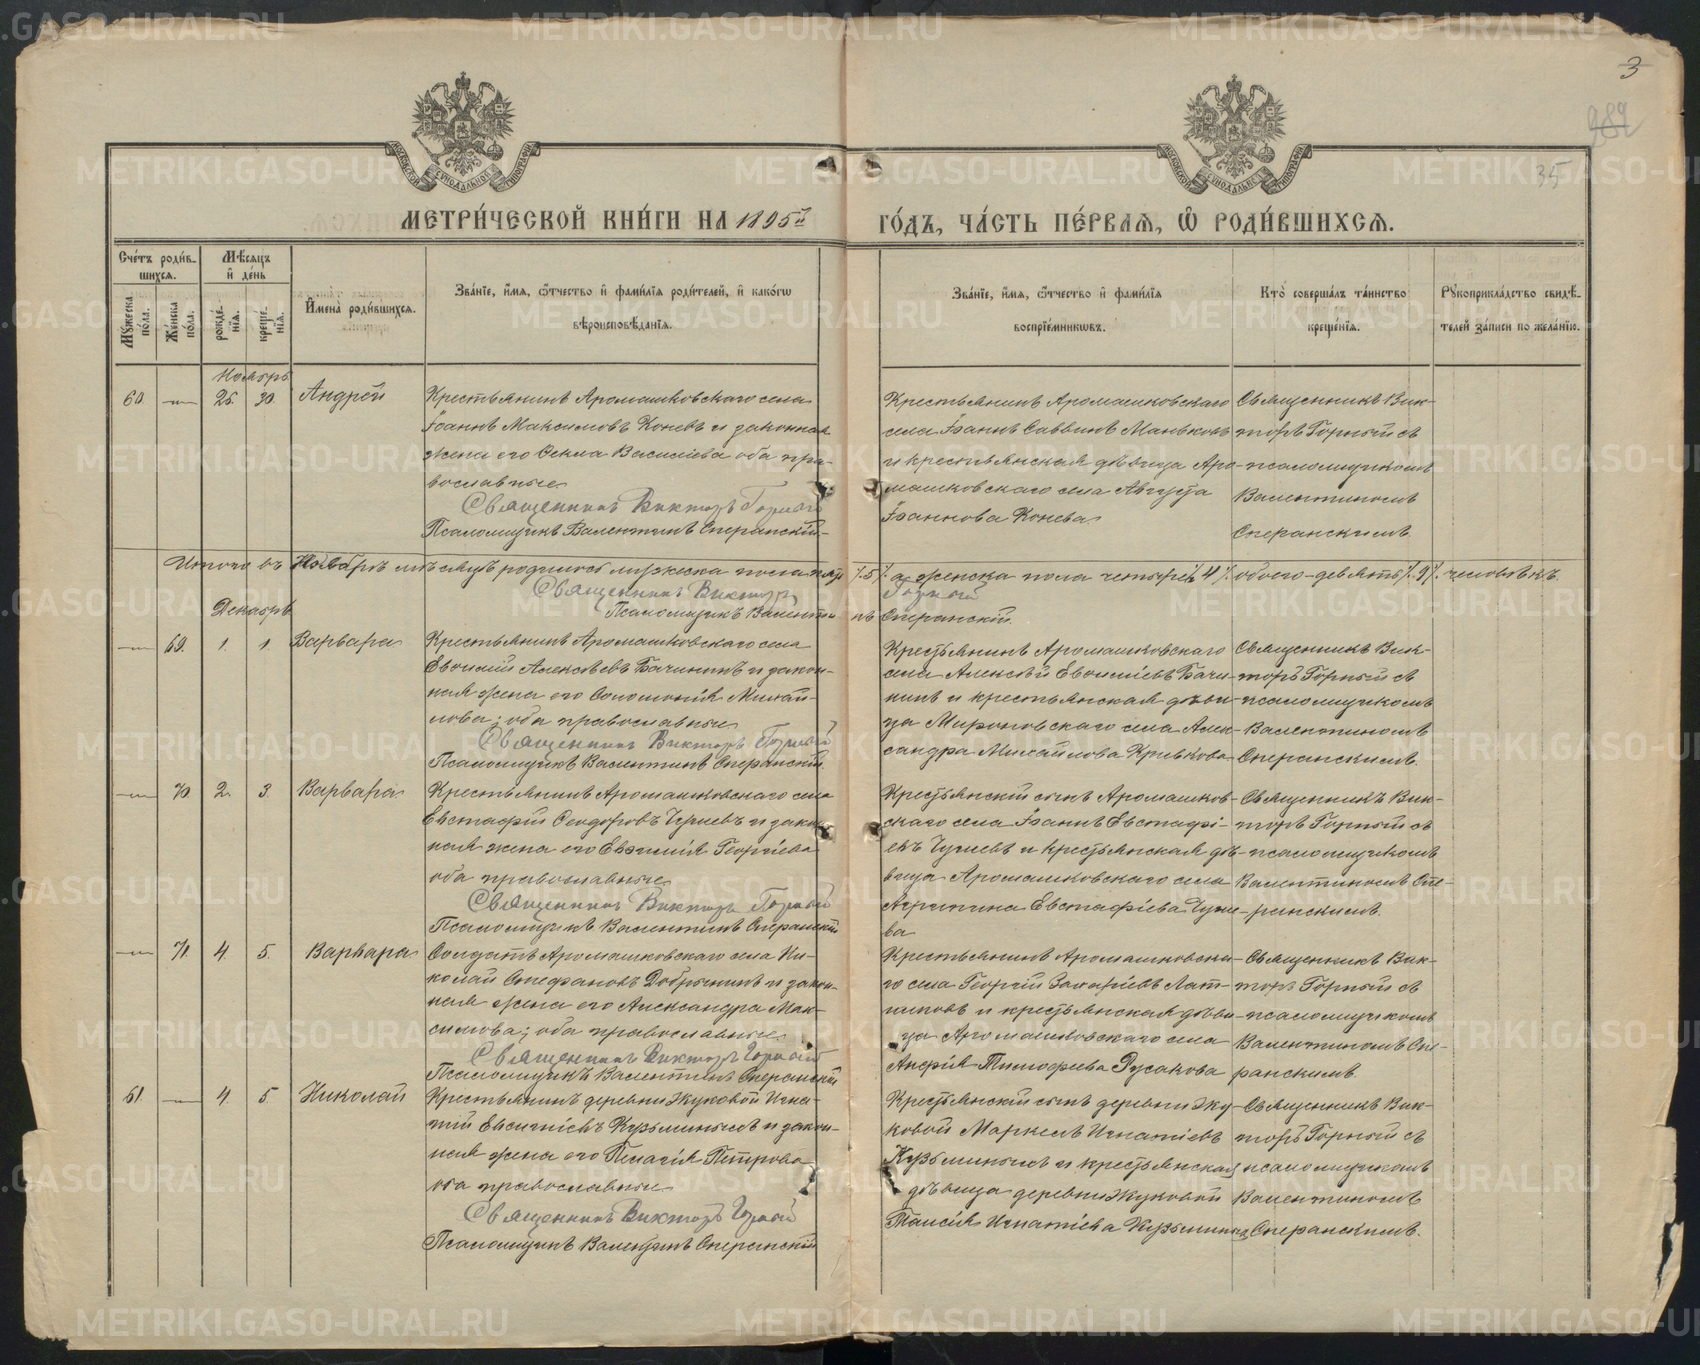 3
282
35
МОСКОВСКОЙ СУНОДАЛЬНОЙ ТИПОГРАФІИ
МОСКОВСКОЙ СУНОДАЛЬНОЙ ТИПОГРАФІИ
МЕТРИ́ЧЕСКОЙ КНИ́ГИ НА 1895й
ГО́ДЪ, ЧА́СТЬ ПЕ́РВАѦ, Ѿ РОДИ́ВШИХСѦ.
Сче́тъ роди́вшихсѧ.
Мѣ́сѧцъ и де́нь
Мꙋ́жеска по́ла.
Же́нска по́ла.
рожде́нїѧ.
креще́нїѧ.
Имена̀ роди́вшихсѧ.
Зва́нїе, и́мѧ, ѻ҆́тчество и фами́лїѧ роди́телей, и како́гѡ
вѣроисповѣ́данїѧ.
Зва́нїе, и́мѧ, ѻ҆́тчество и фами́лїѧ
воспрїе́мникѡвъ.
Кто̀ соверша́лъ та́инство
креще́нїѧ.
Рꙋкоприкла́дство свидѣ́телей за́писи по жела́нїю.
Ноябрь
60. — 25. 30. Андрей
Крестьянинъ Аромашковскаго села
Іоаннъ Максимовъ Коневъ и законная
жена его Фекла Василіева оба пра-
вославные
Священникъ Викторъ Горный
Псаломщикъ Валентинъ Сперанскій
Крестьянинъ Аромашковскаго
села Іоаннъ Саввинъ Маньковъ
и крестьянская дѣвица Аро-
машковскаго села Августа
Іоаннова Конева
Священникъ Вик-
торъ Горный съ
псаломщикомъ
Валентиномъ
Сперанскимъ.
Итого въ Ноябрѣ мѣсяцѣ родилось мужеска пола пять /.5/. а женска пола четыре /.4/. обоего - девять /.9/. человѣкъ.
Священникъ Викторъ Горный
Псаломщикъ Валентинъ Сперанскій.
Декабрь
— 69. 1. 1. Варвара
Крестьянинъ Аромашковскаго села
Евѳимій Алексѣевъ Бачининъ и закон-
ная жена его Соломонія Михай-
лова; оба православные
Священникъ Викторъ Горный
Псаломщикъ Валентинъ Сперанскій.
Крестьянинъ Аромашковскаго
села Алексѣй Евѳиміевъ Бачи-
нинъ и крестьянская дѣви-
ца Мироновскаго села Алек-
сандра Михайлова Кривкова
Священникъ Вик-
торъ Горный съ
псаломщикомъ
Валентиномъ
Сперанскимъ.
— 70. 2. 3. Варвара
Крестьянинъ Аромашковскаго села
Евстафій Ѳеодоровъ Чушевъ и закон-
ная жена его Евѳимія Георгіева
оба православные
Священникъ Викторъ Горный
Псаломщикъ Валентинъ Сперанскій
Крестьянскій сынъ Аромашков-
скаго села Іоаннъ Евстафі-
евъ Чушевъ и крестьянская дѣ-
вица Аромашковскаго села
Агрипина Евстафіева Чуше-
ва
Священникъ Вик-
торъ Горный съ
псаломщикомъ
Валентиномъ Спе-
ранскимъ.
— 71. 4. 5. Варвара
Солдатъ Аромашковскаго села Ни-
колай Стефановъ Добрынинъ и закон-
ная жена его Александра Мак-
симова; оба православные
Священникъ Викторъ Горный
Псаломщикъ Валентинъ Сперанскій
Крестьянинъ Аромашковска-
го села Георгій Захаріевъ Лат-
никовъ и крестьянская дѣви-
ца Аромашковскаго села
Анфія Тимофеева Русакова
Священникъ Вик-
торъ Горный съ
псаломщикомъ
Валентиномъ Спе-
ранскимъ.
61. — 4. 5 Николай
Крестьянинъ деревни Жуковой Игна-
тій Евсигніевъ Кузьминыхъ и закон-
ная жена его Пелагія Петрова
оба православные
Священникъ Викторъ Горный
Псаломщикъ Валентинъ Сперанскій
Крестьянскій сынъ деревни Жу-
ковой Маркелъ Игнатіевъ
Кузьминыхъ и крестьянская
дѣвица деревни Жуковой
Таисія Игнатіева Кузьминыхъ
Священникъ Вик-
торъ Горный съ
псаломщикомъ
Валентиномъ
Сперанскимъ.